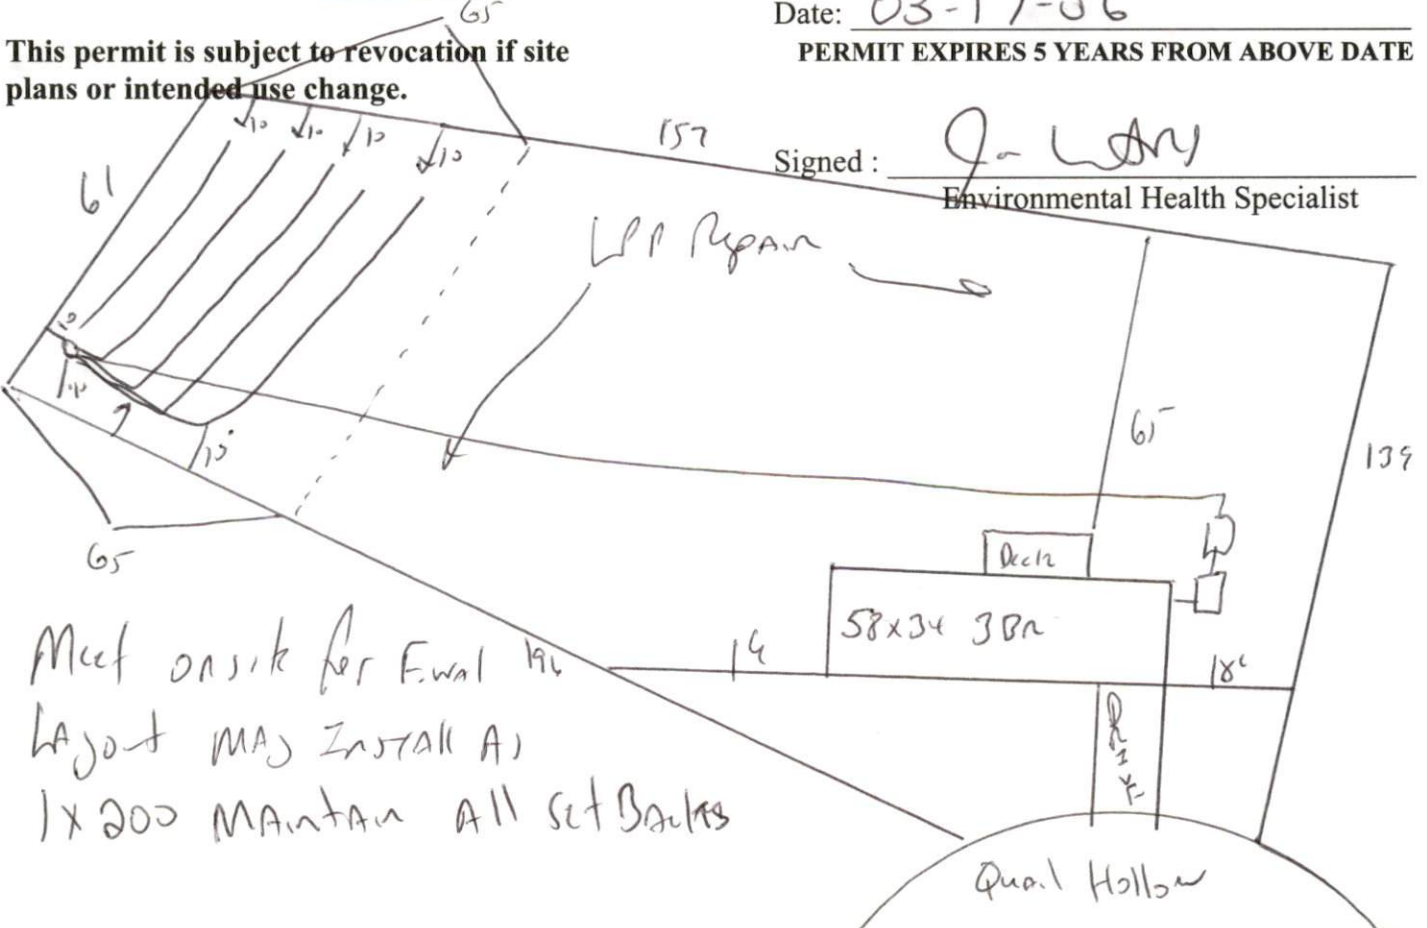 65
Date: 03-17-06
This permit is subject to revocation if site
plans or intended use change.
PERMIT EXPIRES 5 YEARS FROM ABOVE DATE
157
Signed :
Environmental Health Specialist
10 10 10 10
61
LPP Repair
65
139
15
65
Deck
58x34 3Bn
Meet onsite for Final
Layout MAy InstAll As
1x200 MAintAin All SetBAcks
Quail Hollow